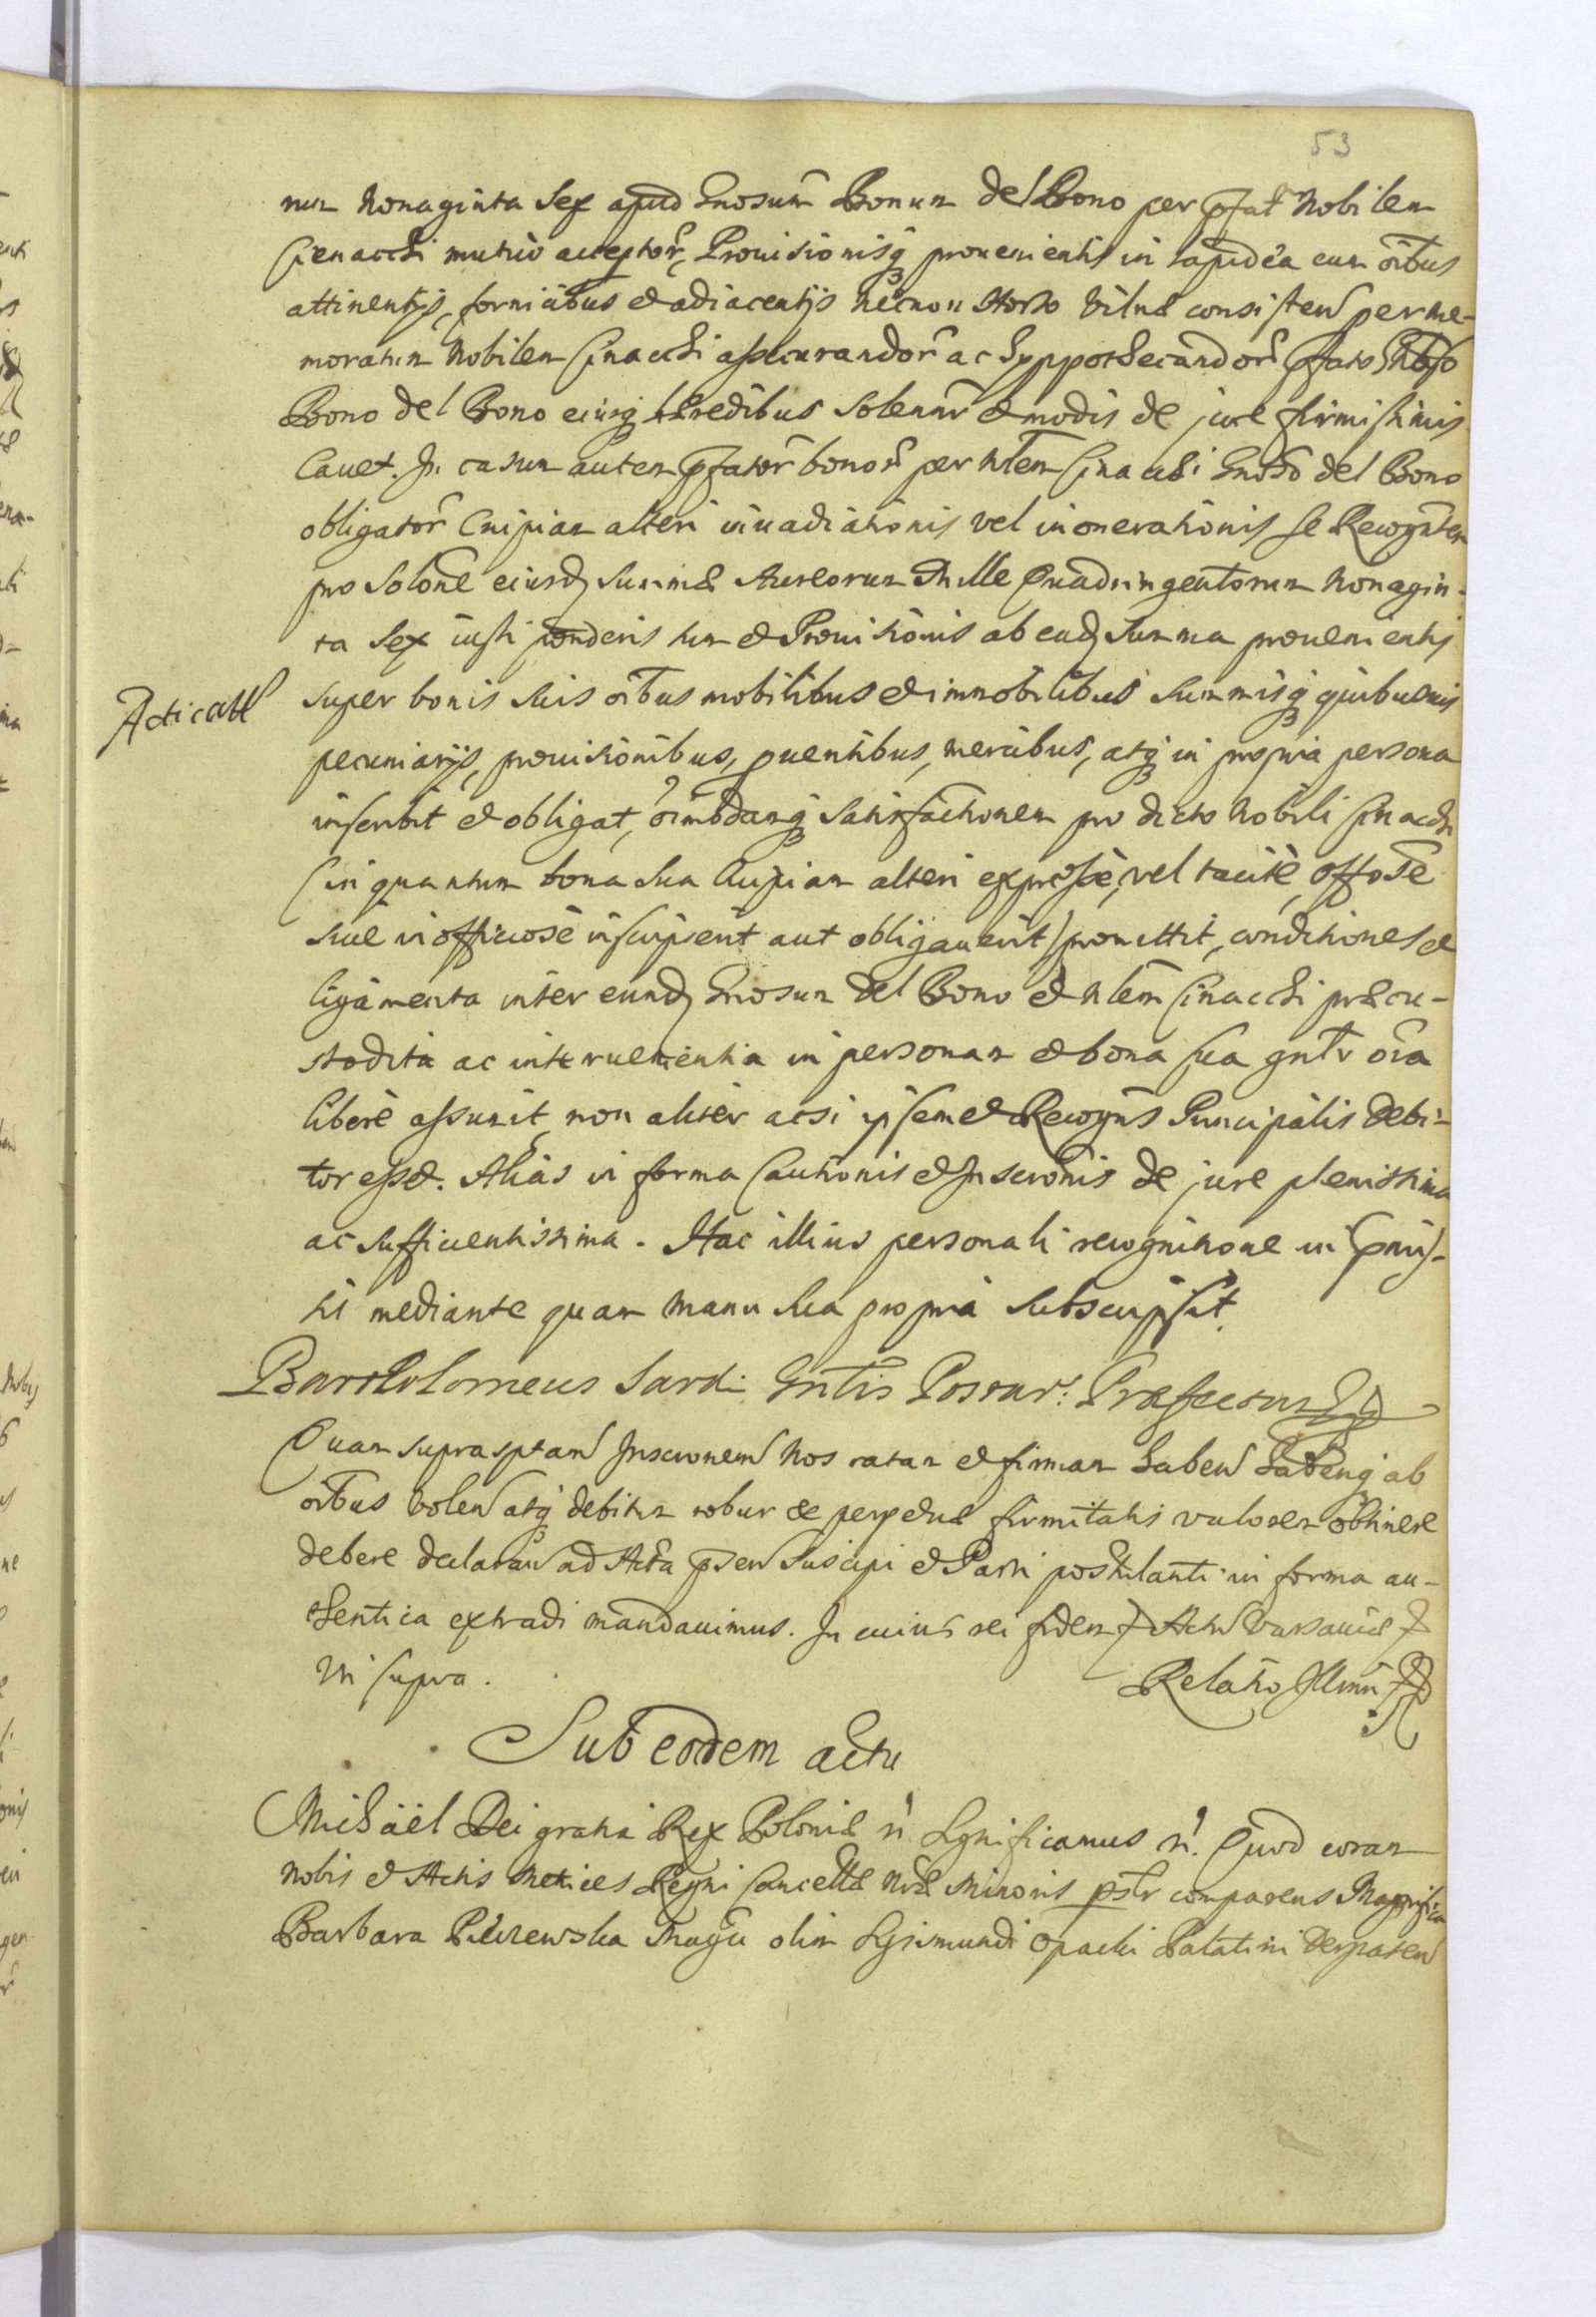 53
num Nonaginta Sex apud Gnosum Bonum del Bono per pfat Nobilem
Cienacchi mutuo acceptor, Prouisionisq prouenientis in lapidea cum oibus
attinentijs, fornicibus et adiacentijs necnon Horto Vilnae consisten per me-
moratum Nobilem Cinacchi assecurandor ac hyppothecandor pfato Gnoso
Bono del Bono eiusq haeredibus solennr et modis de jure firmissimis
Cauet. In casum autem pfator bonor per Nlem Cinacchi Gnoso del Bono
obligator Cuipiam alteri inuadiationis vel inonerationis se Recognitem
pro Solone eiusd Summae Aureorum Mille Quadringentorum Nonagin-
ta Sex iusti ponderis tum et Prouisionis ab ead Summa prouenientis
Acticatt
super bonis suis oibus mobilibus et immobilibus Summisq quibusuis
pecuniarijs, prouisionibus, puentibus, mercibus, atq in propria persona
inscribit et obligat, oimodamq satisfactionem pro dicto Nobili Cinacchi
(in quantum bona sua Cuipiam alteri expresse, vel tacite, offose
siue inofficiose inscripserit aut obligauerit) promittit, conditiones et
ligamenta inter eund Gnosum del Bono et Nlem Cinacchi praecu-
stodita ac interuenientia in personam et bona sua gntr oia
libere assumit, non aliter acsi ipsemet Recogns Principalis Debi-
tor esset. Alias in forma Cautionis et Inscronis de jure plenissima
ac sufficientissima. Hac illius personali recognitione in pnij-
ti mediante quam manu sua propria subscripsit.
Bartholomeus Sardi Gntis Postar: Praefectus
Quam suprasptam Inscronem Nos ratam et firmam haben haberiq ab
oibus volen atq debitum robur et perpetuae firmitatis valorem obtinere
debere declaran ad Acta psen suscipi et Parti postulanti in forma au-
thentica extradi mandauimus. In cuius rei fidem Actu Varsauiae
Vti supra.
Relatio Illmi
Sub eodem actu
Michäel Dei gratia Rex Poloniae Significamus Quod coram
Nobis et Actis Metrices Regni Cancellae Nrae Minoris pstr comparens Magnifica
Barbara Magci olim Sigismundi Opacki Palatini Derpaten